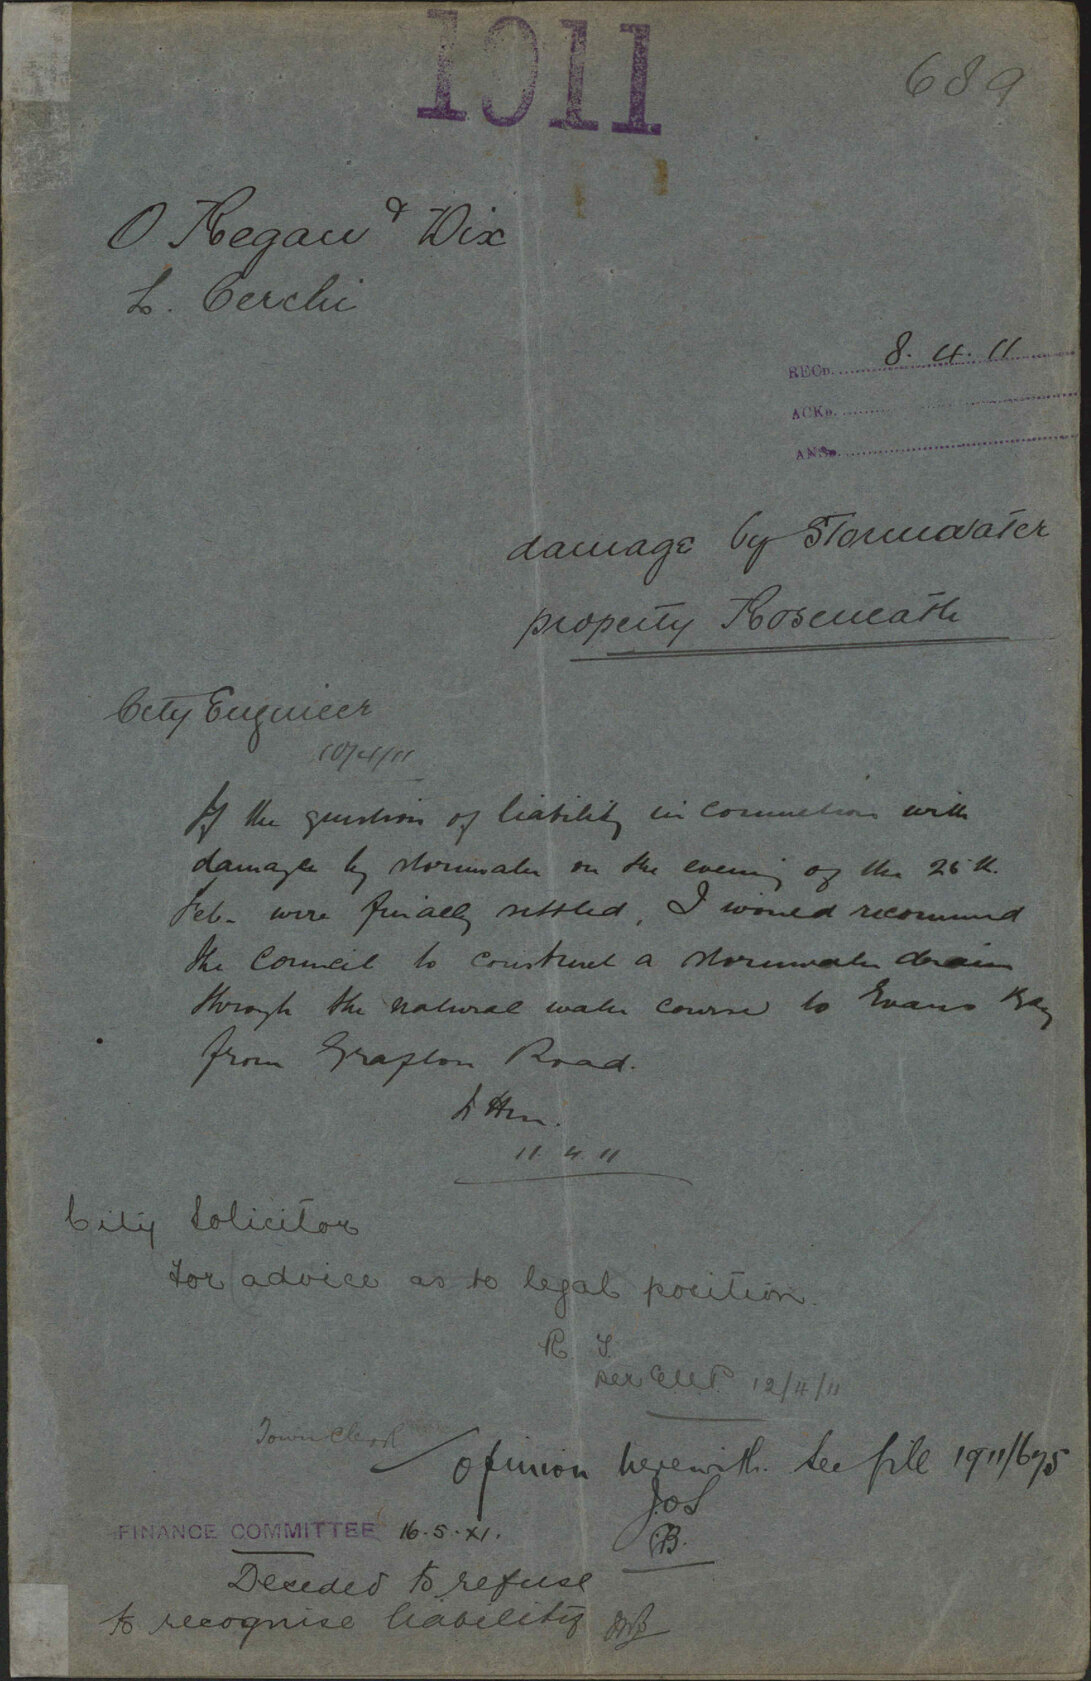 1911
689
O'Regan & Dix
L. Cerchi
RECD. 8. 4. 11
ACKD.
ANSD.
damage by Stormwater
property Roseneath
City Engineer
10/4/11
If the question of liability in connection with
damage by stormwater on the evening of the 26th.
Feb. were finally settled, I would recommend
the Council to construct a stormwater drain
through the natural water course to Evans Bay
from Grafton Road.
11 4 11
City Solicitor
For advice as to legal position.
R. T.
per 12/4/11
Town Clerk
Opinion herewith. See file 1911/675
J.O'S
B.
FINANCE COMMITTEE 16.5.XI.
Decided to refuse
to recognise liability